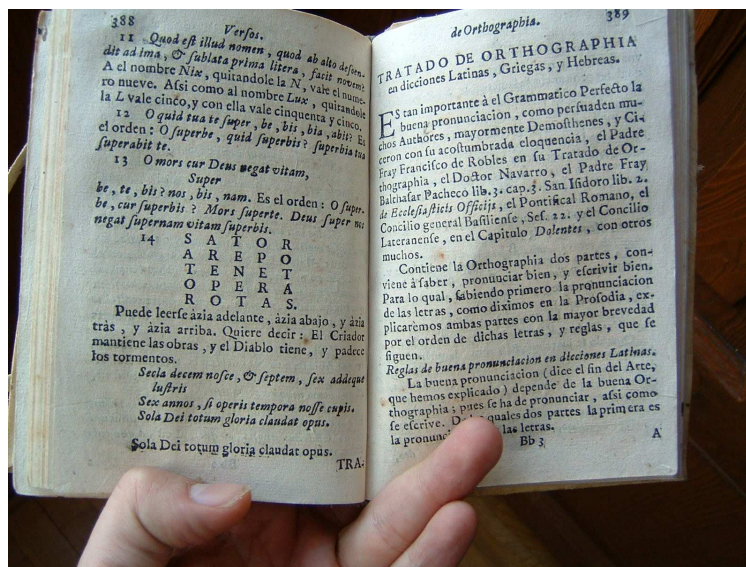 388
Versos.
11 Quod est illud nomen, quod ab alto descen-
dit ad ima, & sublata prima litera, facit novem?
A el nombre Nix, quitandole la N, vale el nume-
ro nueve. Assi como al nombre Lux, quitandole
la L vale cinco, y con ella vale cinquenta y cinco.
12 O quid tua te super, be, bis, bia, abit? Es
el orden: O superbe, quid superbis? superbia tua
superabit te.
13 O mors cur Deus negat vitam,
Super
be, te, bis? nos, bis, nam. Es el orden: O super-
be, cur superbis? Mors superte. Deus super nos
negat supernam vitam superbis.
14 S A T O R
A R E P O
T E N E T
O P E R A
R O T A S.
Puede leerse àzia adelante, àzia abajo, y àzia
tràs, y àzia arriba. Quiere decir: El Criador
mantiene las obras, y el Diablo tiene, y padece
los tormentos.
Secla decem nosce, & septem, sex addeque
lustris
Sex annos, si operis tempora nosse cupis.
Sola Dei totum gloria claudat opus.
Sola Dei totum gloria claudat opus.
TRA-
de Orthographia.
389
TRATADO DE ORTHOGRAPHIA
en dicciones Latinas, Griegas, y Hebreas.
ES tan importante à el Grammatico Perfecto la
buena pronunciacion, como persuaden mu-
chos Authores, mayormente Demosthenes, y Ci-
ceron con su acostumbrada eloquencia, el Padre
Fray Francisco de Robles en su Tratado de Or-
thographia, el Doctor Navarro, el Padre Fray
Balthasar Pacheco lib. 3. cap. 3. San Isidoro lib. 2.
de Ecclesiasticis Officijs, el Pontifical Romano, el
Concilio general Basiliense, Ses. 22. y el Concilio
Lateranense, en el Capitulo Dolentes, con otros
muchos.
Contiene la Orthographia dos partes, con-
viene à saber, pronunciar bien, y escrivir bien.
Para lo qual, sabiendo primero la pronunciacion
de las letras, como diximos en la Prosodia, ex-
plicarèmos ambas partes con la mayor brevedad
por el orden de dichas letras, y reglas, que se
siguen.
Reglas de buena pronunciacion en dicciones Latinas.
La buena pronunciacion (dice el fin del Arte,
que hemos explicado) depende de la buena Or-
thographia; pues se ha de pronunciar, assi como
se escrive. quales dos partes la primera es
la las letras.
Bb 3
A